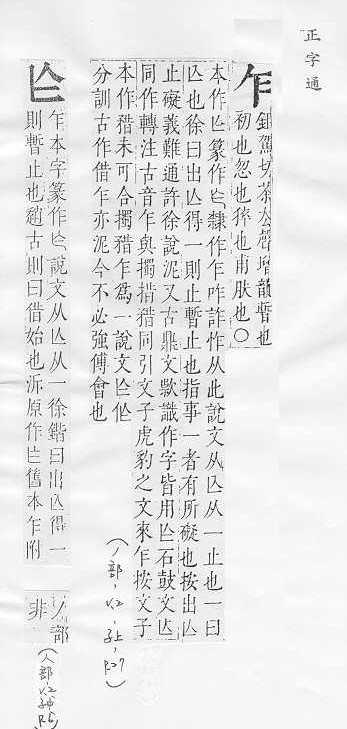 正字通
乍
鉏駕切茶去聲增韻暫也
初也忽也猝也甫肤也○
本作亾篆作亾隸作乍咋詐作从此說文从亾从一止也一曰
亾也徐曰出亾得一則止暫止也指事一者有所礙也按出亾
止礙義難通許徐說泥又古鼎文欵識作字皆用亾石鼓文亾
同作轉注古音乍與擉㨋猎同引文子虎豹之文來乍按文子
本作猎未可合擉猎乍爲一說文亾
分訓古作借乍亦泥今不必強傅會也
(丿部,V2,子上,P.27)
乍本字篆作亾說文从亾从一徐鍇曰出亾得一
則暫止也趙古則曰借始也泝原作亾舊本乍附
丿部
非
(人部,V2,子